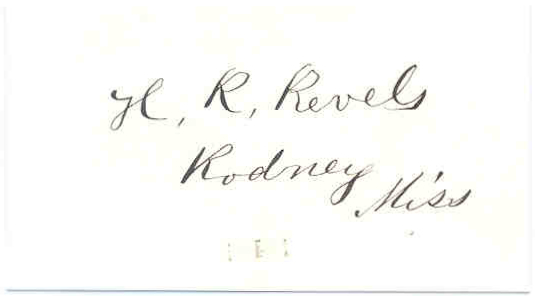 H. R. Revels
Rodney
Miss